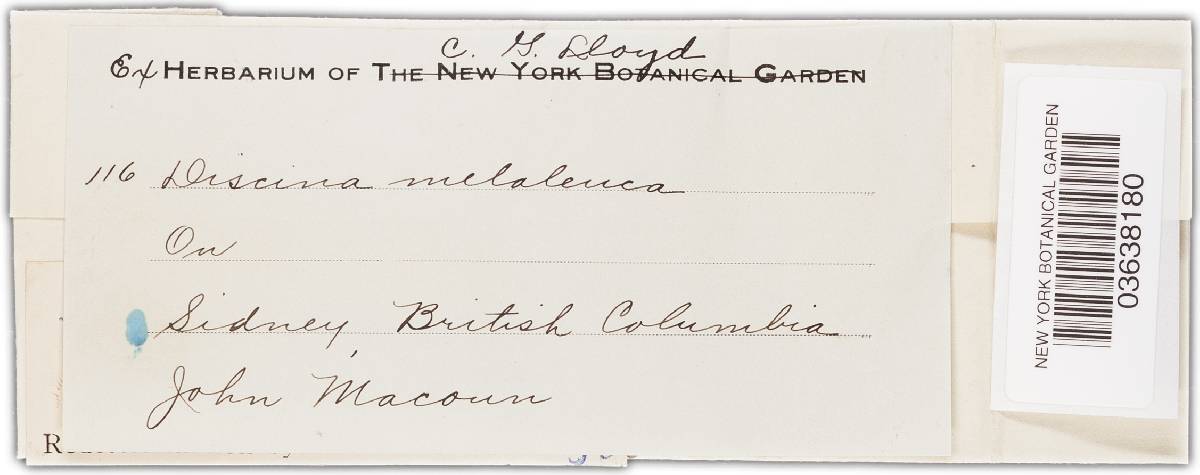 C. G. Lloyd
Ex HERBARIUM OF THE NEW YORK BOTANICAL GARDEN
116 Discina melaleuca
On
Sidney, British Columbia
John Macoun
NEW YORK BOTANICAL GARDEN
03638180